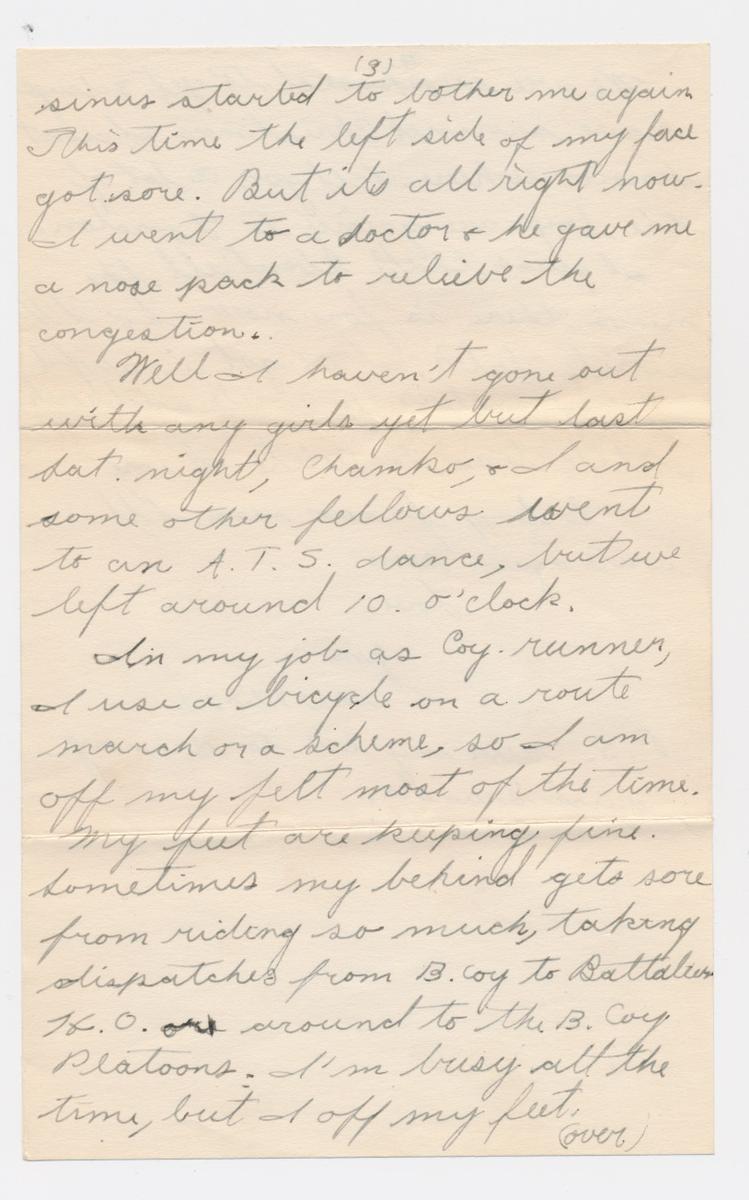 (3)
sinus started to bother me again
This time the left side of my face
got sore. But its all right now.
I went to a doctor & he gave me
a nose pack to relieve the
congestion.
Well I haven't gone out
with any girls yet but last
Sat. night, Chamko, & I and
some other fellows went
to an A.T.S. dance, but we
left around 10. o'clock.
In my job as Coy. runner,
I use a bicycle on a route
march or a scheme, so I am
off my felt most of the time.
My feet are keeping fine.
Sometimes my behind gets sore
from riding so much, taking
dispatches from B. Coy to Battalion
H.O. around to the B. Coy
Platoons. I'm busy all the
time, but I off my feet.
(over)